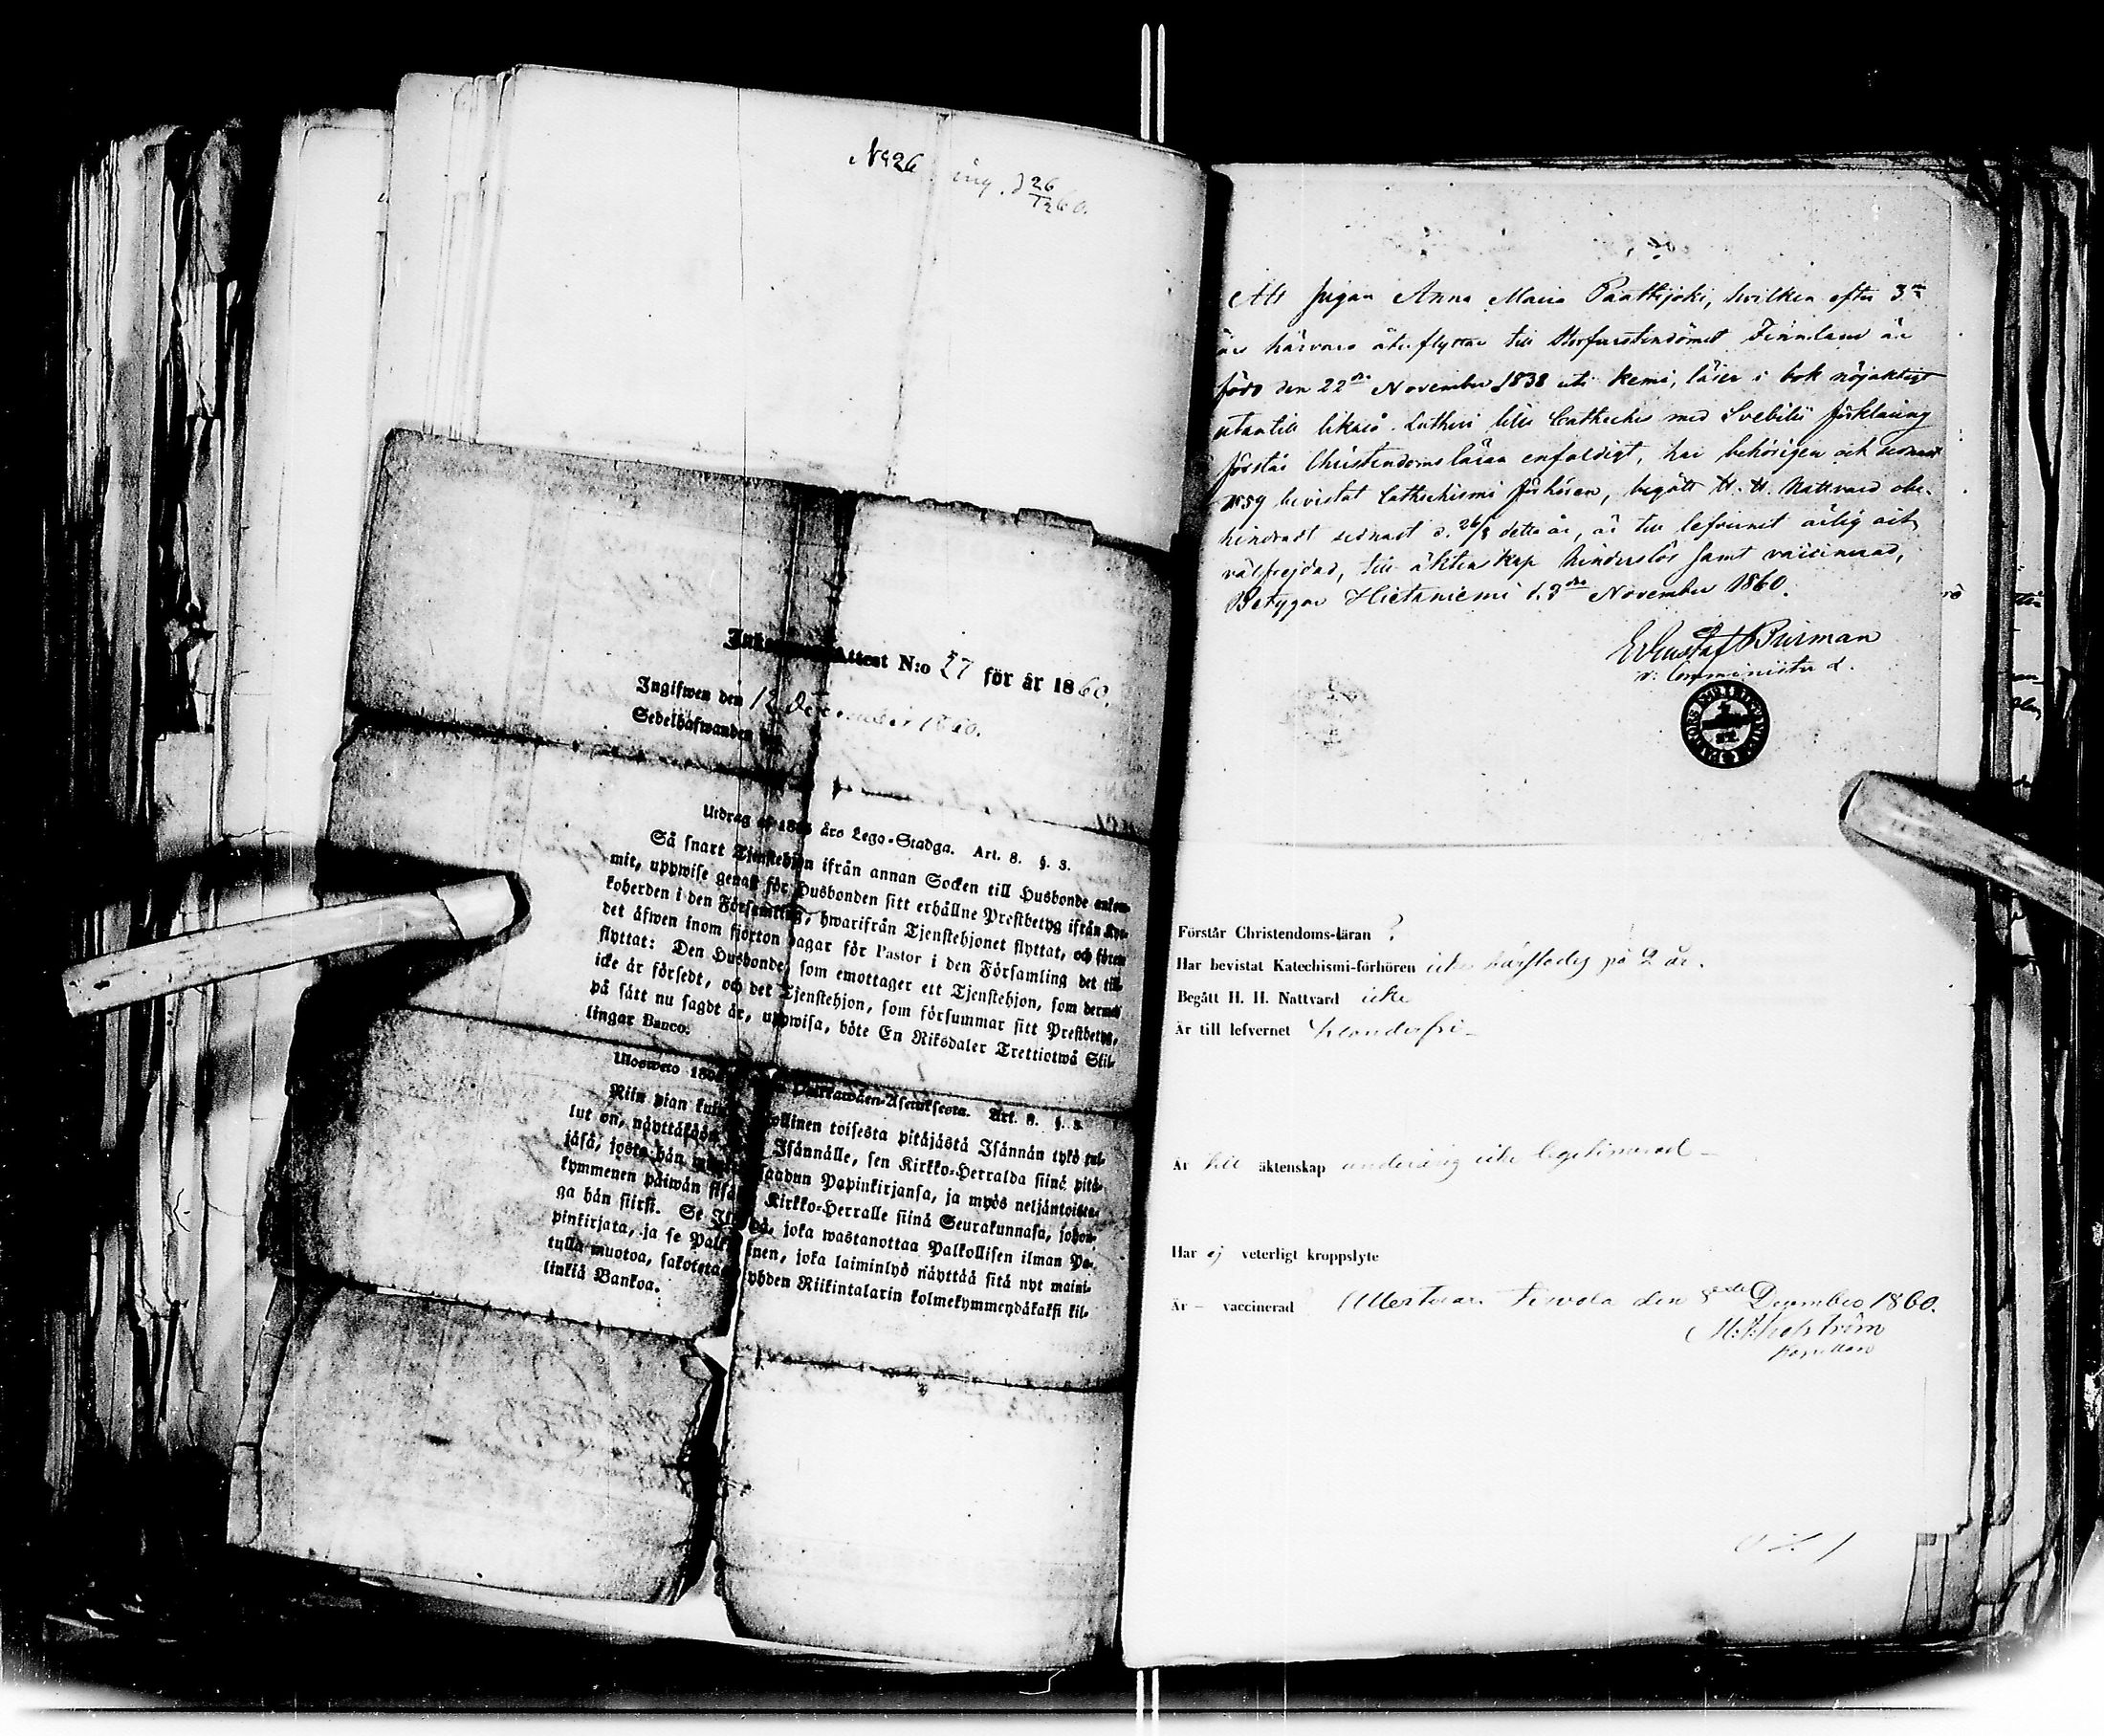 No 26 ing. d 26/12 60.
Attest N:o 27 för år 1860.
Ingifwen den 12 December 1860.
Sedelhafwanden
Utdrag af års Lego-Stadga. Art. 8. §. 3.
Så snart Tjenstehjon ifrån annan Socken till Husbonde
mit, uppwise genast för Husbonden sitt erhållne Prestbetyg ifrån
koherden i den Församling, hwarifrån Tjenstehjonet flyttat, och
det äfwen inom fjorton dagar för Pastor i den Församling det till
flyttat: Den Husbonde, som emottager ett Tjenstehjon, som dermed
icke är försedt, och det Tjenstehjon, som försummar sitt Prestbetyg,
på sätt nu sagdt är, uppwisa, böte En Riksdaler Trettiotwå Skil-
lingar Banco.
Art. 8. §. 3
Niin pian toisesta pitäjästä Isännän tykö tul-
lut on, Isännälle, sen Kirkko-Herralda siinä pitä-
jäsä, josta hän saadun Papinkirjansa, ja myös neljäntoista-
kymmenen päiwän Kirkko-Herralle siinä Seurakunnasa, johon-
ga hän siirsi. Se joka wastanottaa Palkollisen ilman Pa-
pinkirjata, ja se joka laiminlyö näyttää sitä nyt maini-
tulla muotoa, yhden Riikintalarin kolmekymmendäkaksi kil-
linkiä Bankoa.
Att pigan Anna Maria Paattijoki, hvilken efter 3
års härvaro återflyttar till Storfurstendömet Finnland är
född den 22 November 1838 uti Kemi, läser i bok nöjaktigt
utantill likaså Lutheri lilla Cathechis med Svebilii förklaring
förstår Christendomsläran enfaldigt, har behörigen och sednast
1859 bevistat Cathechismi förhören, begått H. H. Nattvard obe-
hindradt sednast d. 26/8 detta år, är till lefvernet ärlig och
välfrejdad, till äktenskap hinderslös samt vaccinerad,
Betygar Hietaniemi d. 9 November 1860.
Gustaf Burman
v. Comminister
Förstår Christendoms-läran ?
Har bevistat Katechismi-förhören icke härstädes på 2 år.
Begått H. H. Nattvard icke
Är till lefvernet klanderfri
Är till äktenskap underårig icke legitimerad
Har ej veterligt kroppslyte
Är – vaccinerad Attesterar Tervola den 8 December 1860.
Kapellan